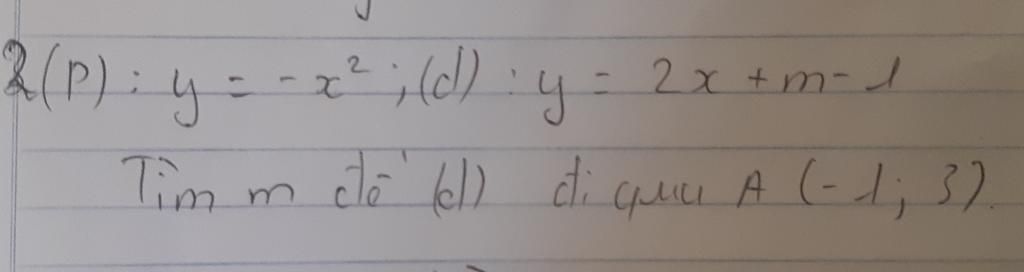 2 (P) : y = -x² ; (d) : y = 2x + m - 1
Tìm m để (d) đi qua A (-1; 3).